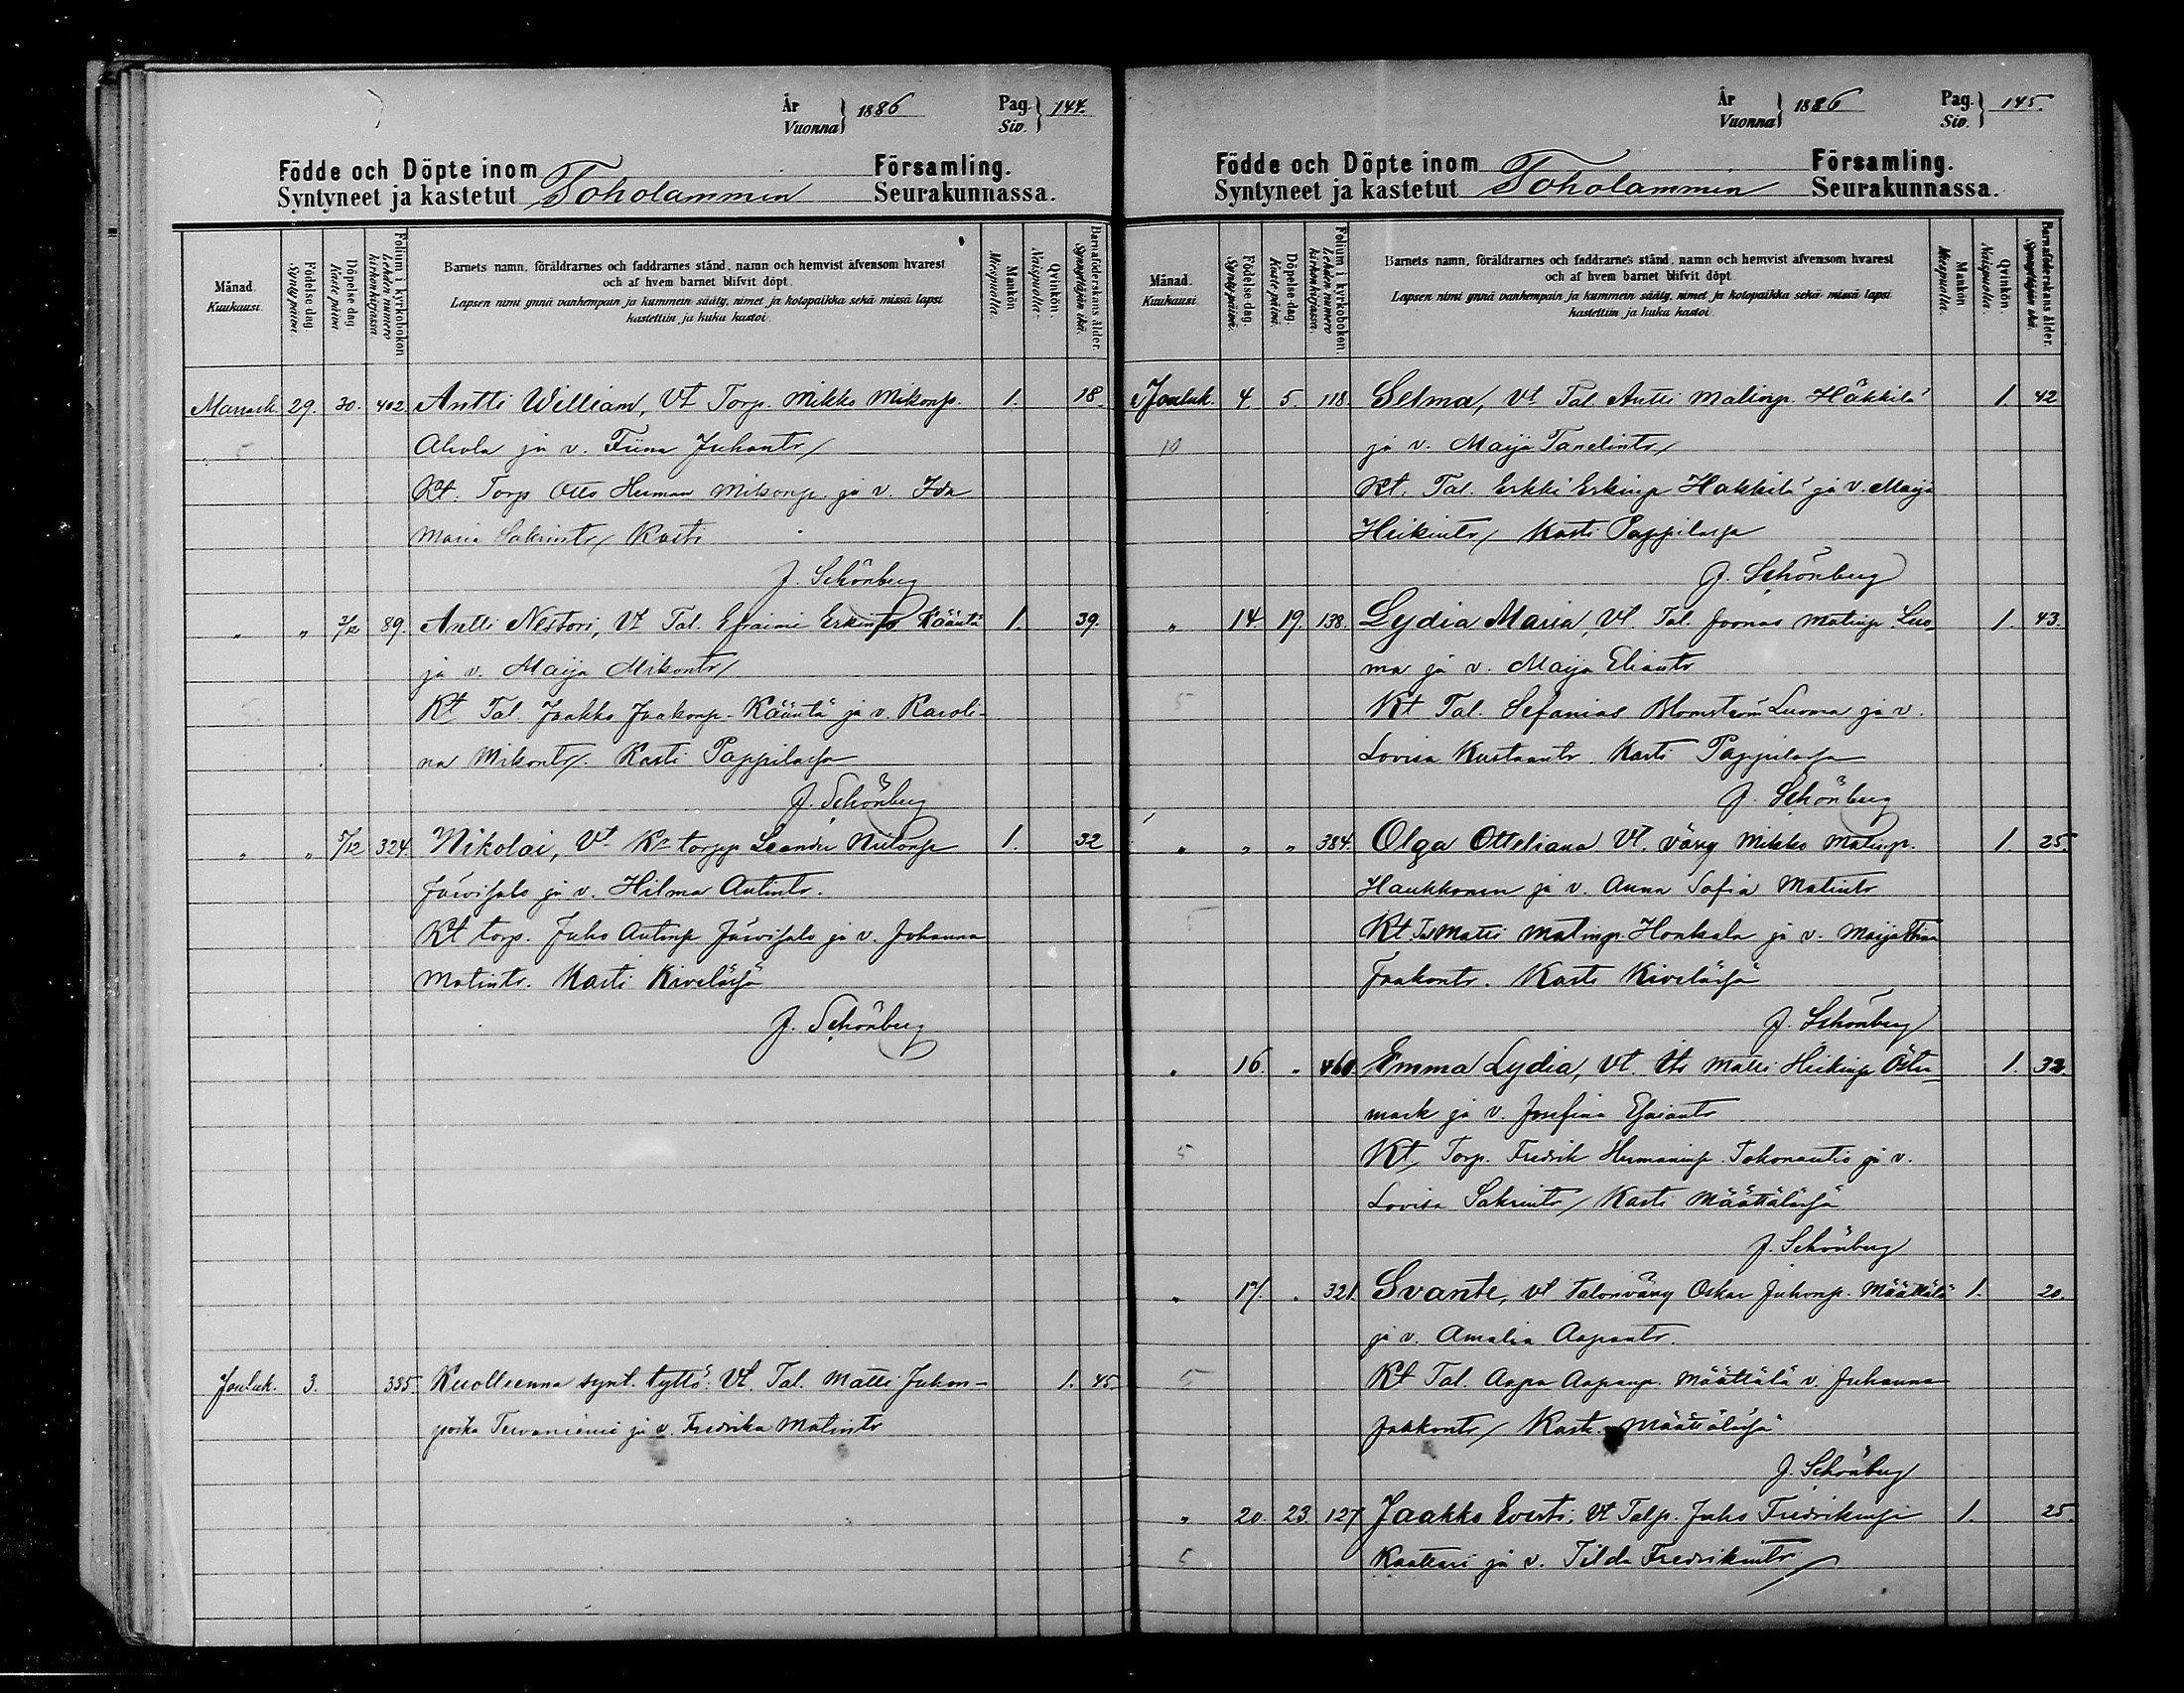 År
Vuonna } 1886
Pag.
Siv. } 144.
Födde och Döpte inom Församling.
Syntyneet ja kastetut Toholammin Seurakunnassa.
Månad.
Kuukausi.
Födelse dag.
Synty päivä.
Döpelse dag.
Kaste päivä.
Folium i kyrkoboken
Lehden numero kirkonkirjassa.
Barnets namn, föräldrarnes och faddrarnes stånd, namn och hemvist äfvensom hvarest
och af hvem barnet blifvit döpt.
Lapsen nimi ynnä vanhempain ja kummein sääty, nimet ja kotopaikka sekä missä lapsi
kastettiin ja kuka kastoi.
Mankön.
Miespuolta.
Qvinkön.
Naispuolta.
Barnaföderskans ålder.
Synnyttäjän ikä.
Marrask. 29. 30. 402. Antti William, Vt Torp. Mikko Mikonp. 1. 18.
Ahola ja v. Fiina Juhontr/
Kt. Torp Otto Herman Mikonp. ja v. Ida
Maria Sakrintr/ Kasti
J. Schönberg
" " 3/12 89. Antti Nestori, Vt Tal. Efraimi Erkinp Kääntä 1. 39.
ja v. Maija Mikontr/
Kt Tal. Jaakko Jaakonp. Kääntä ja v. Karoli-
na Mikontr/. Kasti Pappilassa
J. Schönberg
" " 5/12 324. Nikolai, Vt Kn torpp Leander Niilonp 1. 32
Järvisalo ja v. Hilma Antintr.
Kt torp. Juho Antinp Järvisalo ja v. Johanna
Matintr. Kasti Kivelässä
J. Schönberg
Jouluk. 3. 335. Kuolleenna synt. tyttö: Vt. Tal. Matti Juhon- 1. 45.
poika Tervaniemi ja v. Fredrika Matintr
År
Vuonna } 1886
Pag.
Siv. } 145.
Födde och Döpte inom Församling.
Syntyneet ja kastetut Toholammin Seurakunnassa.
Månad.
Kuukausi.
Födelse dag.
Synty päivä.
Döpelse dag.
Kaste päivä.
Folium i kyrkoboken.
Lehden numero kirkonkirjassa.
Barnets namn, föräldrarnes och faddrarnes stånd, namn och hemvist äfvensom hvarest
och af hvem barnet blifvit döpt.
Lapsen nimi ynnä vanhempain ja kummein sääty, nimet ja kotopaikka sekä missä lapsi
kastettiin ja kuka kastoi.
Mankön.
Miespuolta.
Qvinkön.
Naispuolta.
Barnaföderskans ålder.
Synnyttäjän ikä.
Jouluk. 4. 5. 118. Selma, Vt Tal. Antti Matinp. Häkkilä 1. 42
10 ja v. Maija Tanelintr/
Kt. Tal. Erkki Erkinp Häkkilä ja v. Maija
Heikintr/ Kasti Pappilassa
J. Schönberg
" 14. 19. 138. Lydia Maria, Vt. Tal. Joonas Matinp. Luo- 1. 43.
ma ja v. Maija Eliantr
5 Kt Tal. Sefanias Blomström Luoma ja v.
Lovisa Kustaantr. Kasti Pappilassa
J. Schönberg
" " " 384. Olga Otteliana Vt. vävy Mikko Matinp. 1. 25.
Haukkonen ja v. Anna Sofia Matintr
5 Kt. Tal Matti Matinp. Honkala ja v. Maija Stina
Jaakontr. Kasti Kivelässä
J. Schönberg
" 16. " 460. Emma Lydia, Vt. Its Matti Heikinp Öster- 1. 32.
mark ja v. Josefina Esaiantr
5 Kt, Torp. Fredrik Hermaninp. Tokonautio ja v.
Lovisa Sakrintr/ Kasti Määttälässä
J. Schönberg
" 17. " 321. Svante, Vt Talonvävy Oskar Juhonp. Määttälä 1. 20.
ja v. Amalia Aapantr.
5 Kt Tal. Aapa Aapanp. Määttälä v. Johanna
Jaakontr/ Kasti Määttälässä
J. Schönberg
" 20. 23. 127 Jaakko Everti, Vt Talp. Juho Fredrikinp 1. 25.
5 Kaattari ja v. Tilda Fredrikintr/